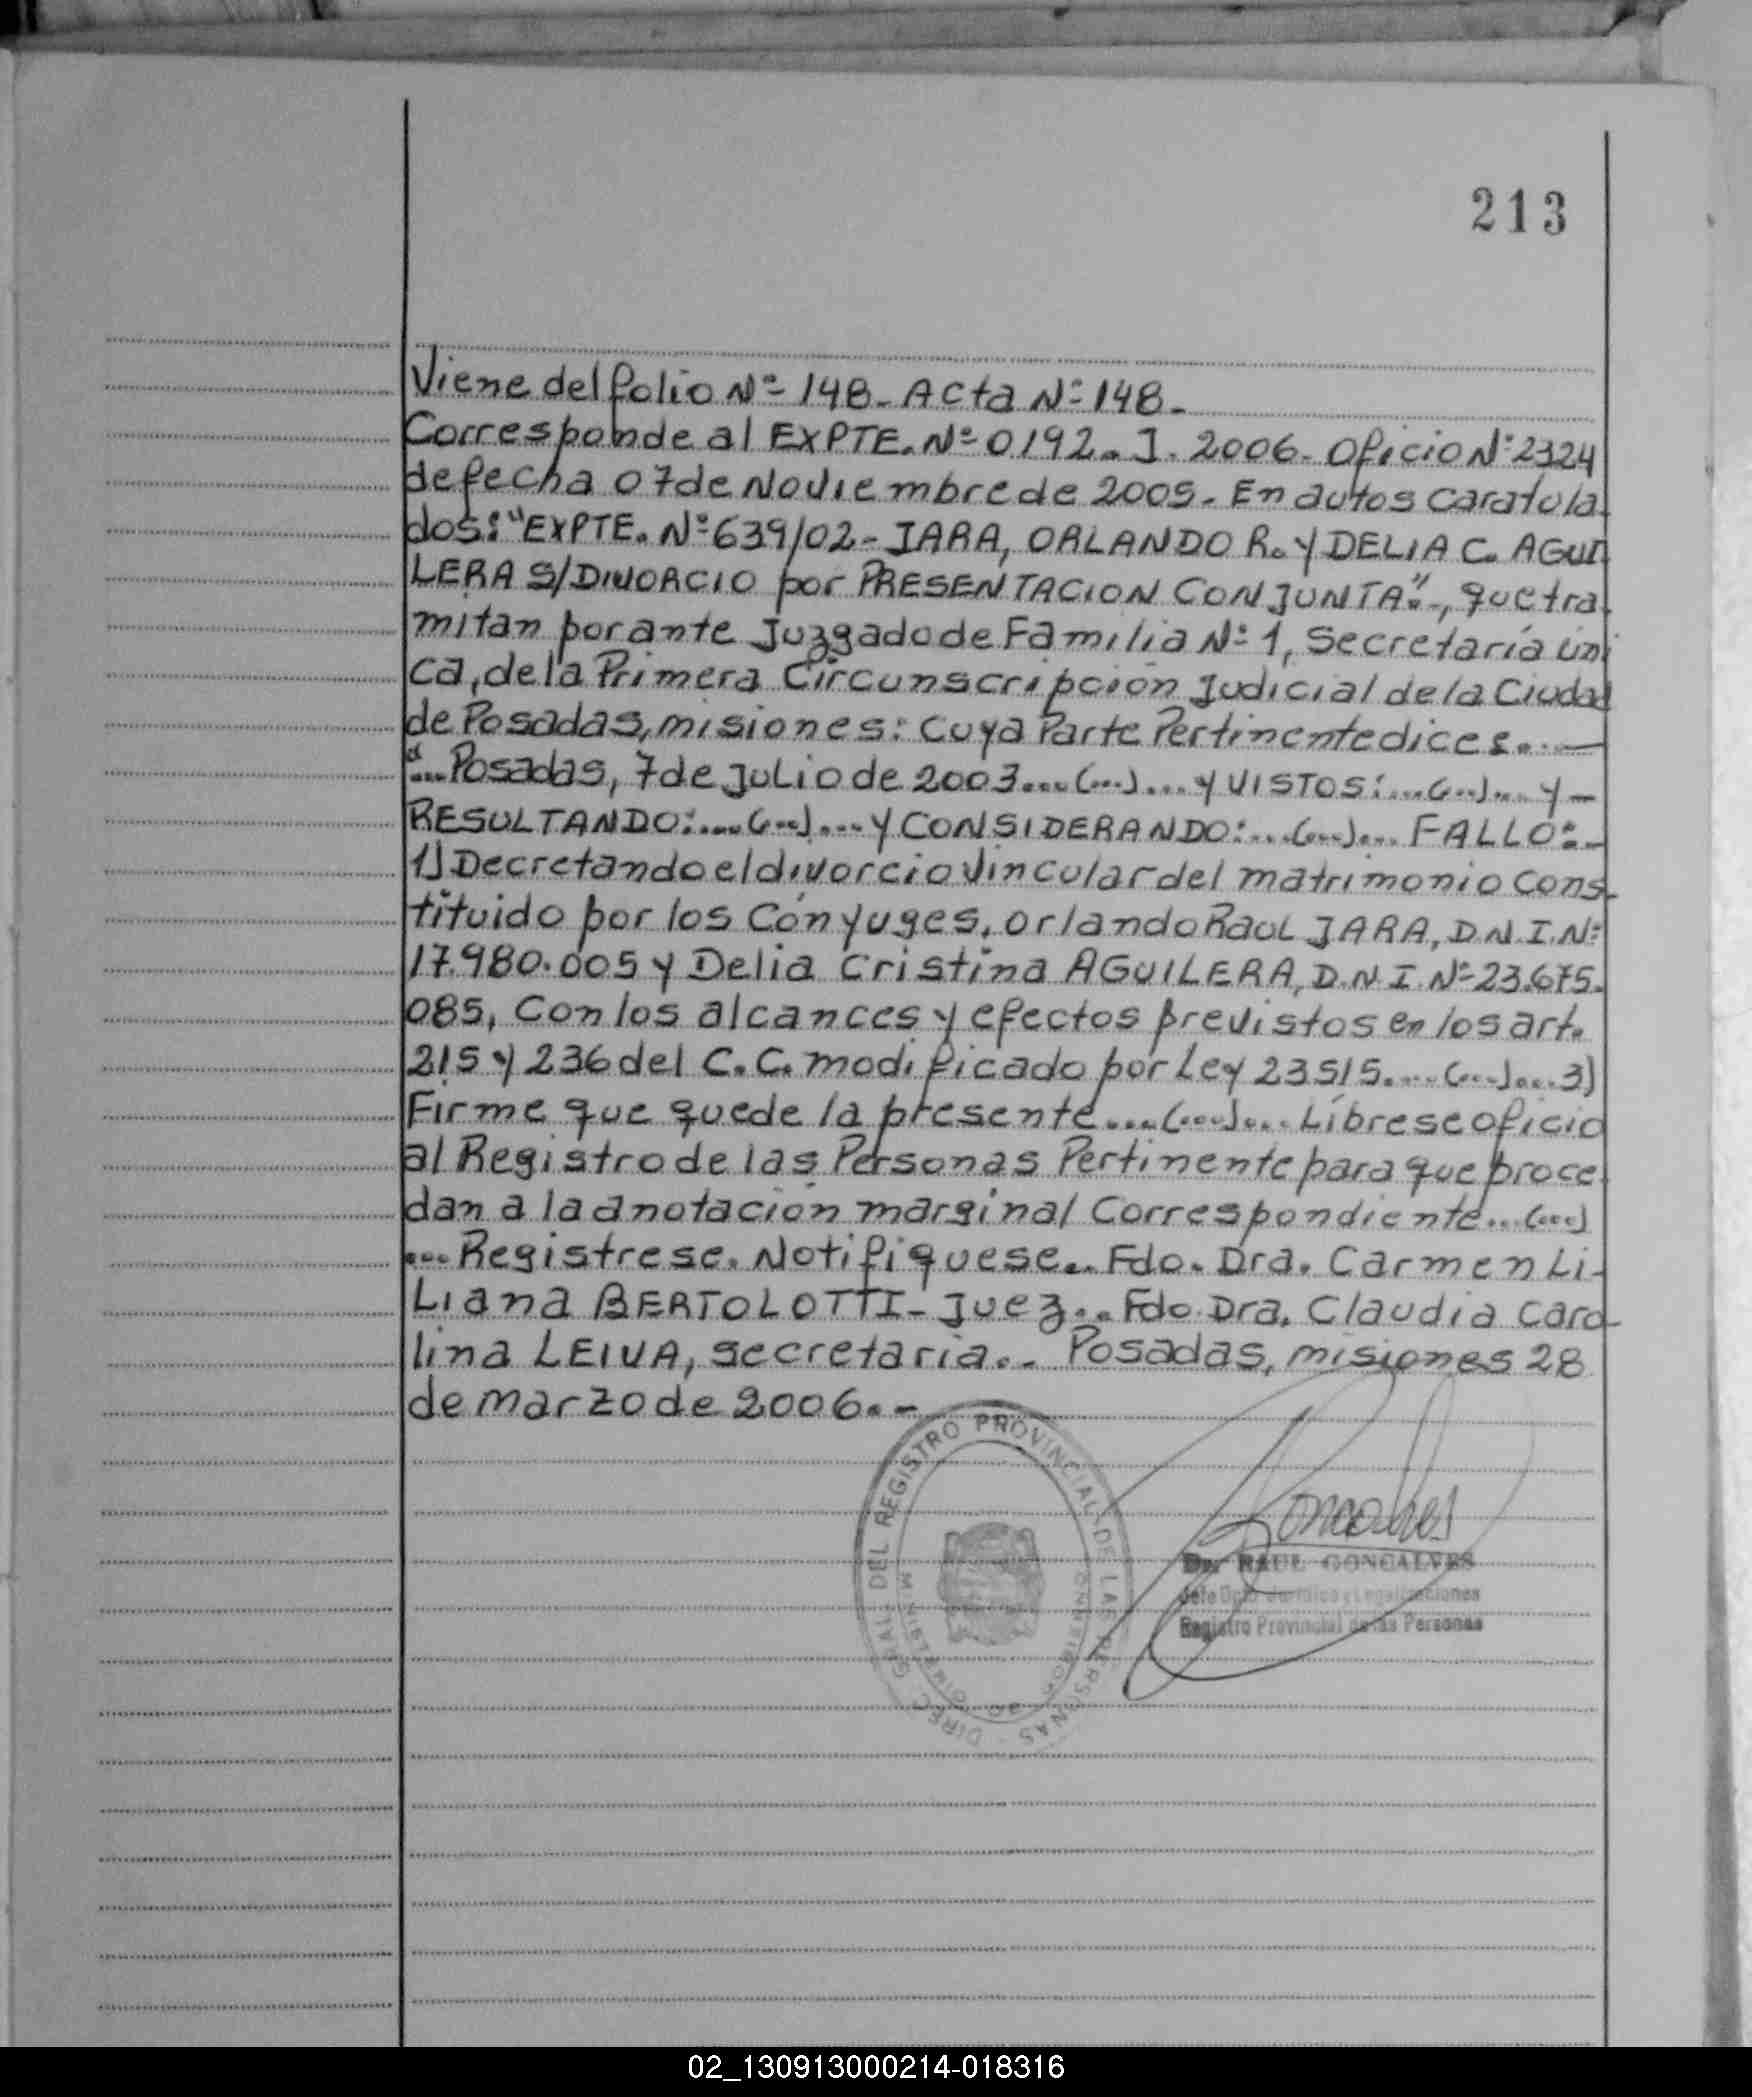 213
Viene del folio Nº 148_ Acta Nº 148_
Corresponde al EXPTE. Nº 0192. J. 2006. Oficio Nº 2324
de fecha 07 de Noviembre de 2005. En autos caratula_
dos: "EXPTE. Nº 639/02_ JARA, ORLANDO R. Y DELIA C. AGUI_
LERA S/DIVORCIO por PRESENTACION CONJUNTA"., que tra_
mitan por ante Juzgado de Familia Nº 1, Secretaría úni
ca, de la Primera Circunscripción Judicial de la Ciudad
de Posadas, misiones: Cuya Parte Pertinente dice s...—
"...Posadas, 7 de Julio de 2003....(...)....y VISTOS:...(...)....y—
RESULTANDO:....(...)....y CONSIDERANDO:...(...)... FALLO:._
1) Decretando el divorcio vincular del matrimonio cons_
tituido por los Cónyuges, orlando Raul JARA, D.N.I.Nº
17.980.005 y Delia Cristina AGUILERA, D.N.I. Nº 23.675.
085, Con los alcances y efectos previstos en los art.
215 y 236 del C.C. modificado por Ley 23515....(...)...3)
Firme que quede la presente....(...)....Líbrese oficio
al Registro de las Personas Pertinente para que proce_
dan a la anotación marginal Correspondiente...(...)
...Registrese. Notifiquese... Fdo. Dra. Carmen Li_
Liana BERTOLOTTI_ Juez.. Fdo. Dra. Claudia Caro_
lina LEIVA, secretaria.._ Posadas, misiones 28
de marzo de 2006._
DIREC. GRAL. DEL REGISTRO PROVINCIAL DE LAS PERSONAS
Goncalves
Dr. RAUL GONCALVES
Jefe Dpto Jurídico y Legalizaciones
Registro Provincial de las Personas
02_130913000214-018316